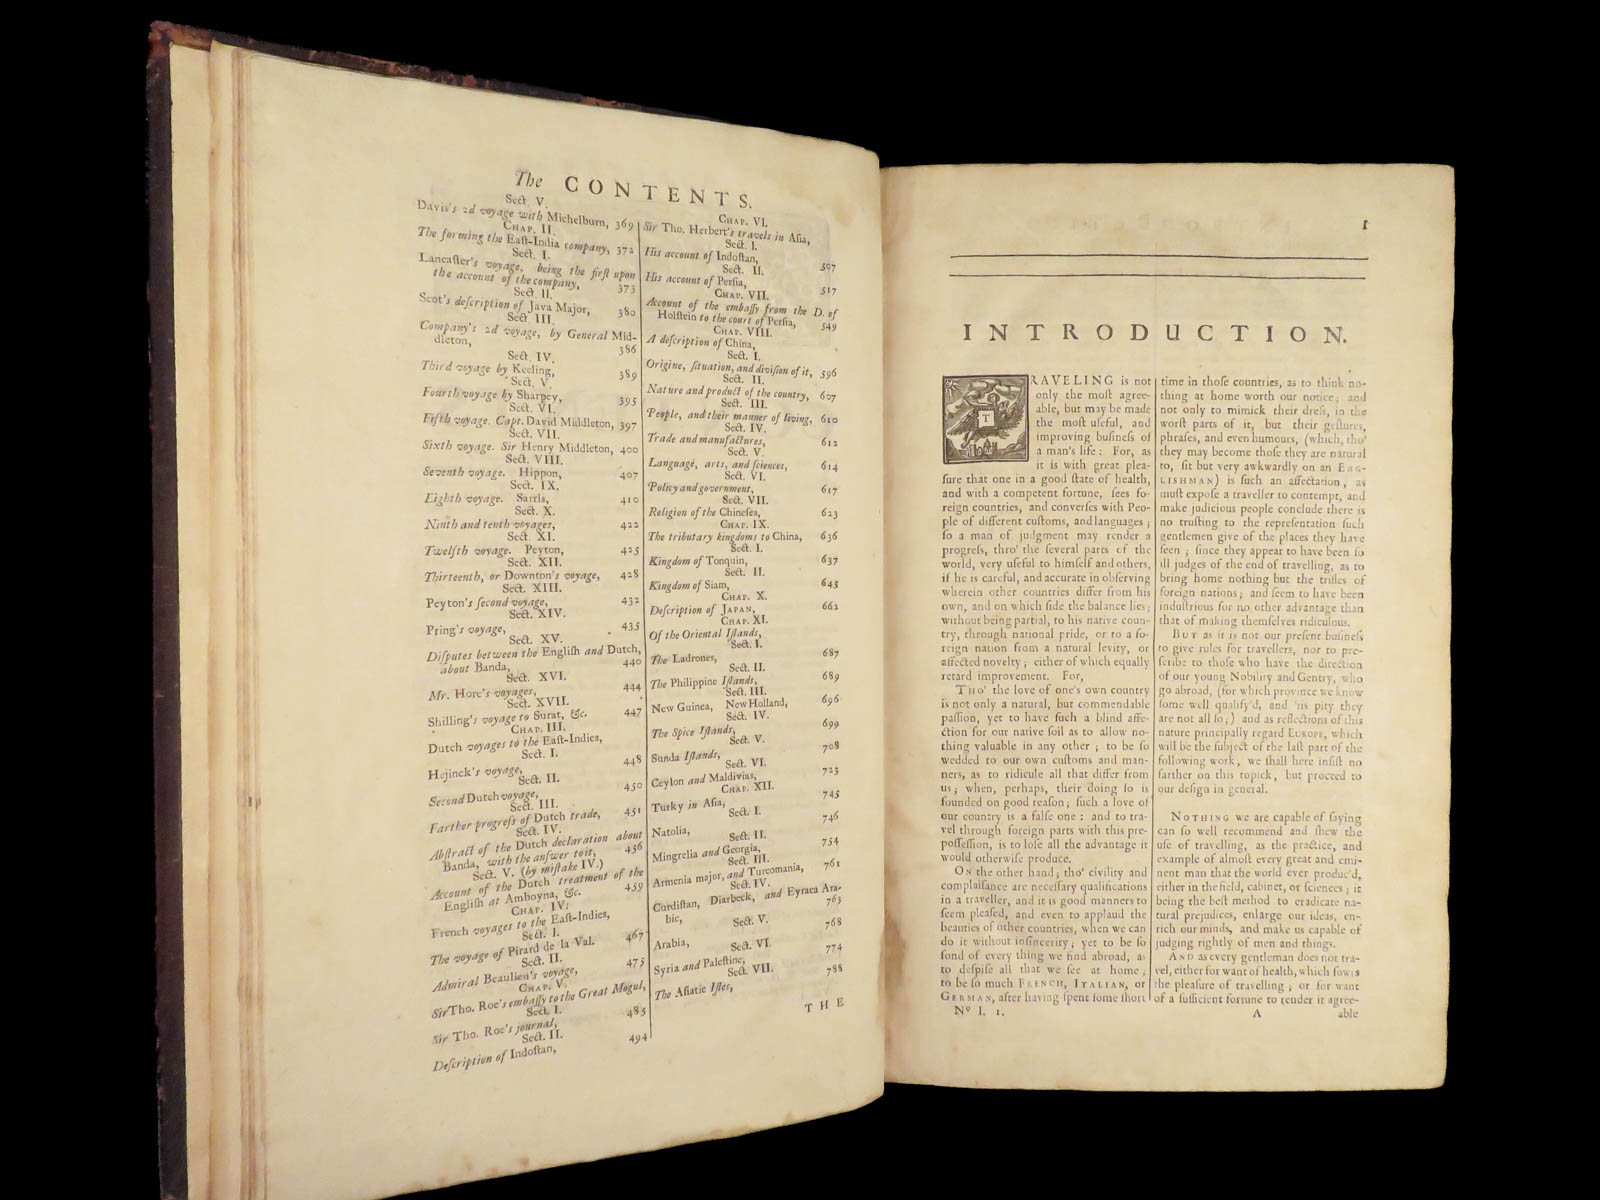 The CONTENTS.
Sect. V.
Davis's 2d voyage with Michelburn, 369
CHAP. II.
The forming the Eaſt-India company, 372
Sect. I.
Lancaſter's voyage, being the firſt upon
the account of the company, 373
Sect. II.
Scot's deſcription of Java Major, 380
Sect. III.
Company's 2d voyage, by General Mid-
dleton, 386
Sect. IV.
Third voyage by Keeling, 389
Sect. V.
Fourth voyage by Sharpey, 395
Sect. VI.
Fifth voyage. Capt. David Middleton, 397
Sect. VII.
Sixth voyage. Sir Henry Middleton, 400
Sect. VIII.
Seventh voyage. Hippon, 407
Sect. IX.
Eighth voyage. Sarris, 410
Sect. X.
Ninth and tenth voyages, 422
Sect. XI.
Twelfth voyage. Peyton, 425
Sect. XII.
Thirteenth, or Downton's voyage, 428
Sect. XIII.
Peyton's ſecond voyage, 432
Sect. XIV.
Pring's voyage, 435
Sect. XV.
Diſputes between the Engliſh and Dutch,
about Banda, 440
Sect. XVI.
Mr. Hore's voyages, 444
Sect. XVII.
Shilling's voyage to Surat, &c. 447
CHAP. III.
Dutch voyages to the Eaſt-Indies,
Sect. I.
Hejinck's voyage, 448
Sect. II.
Second Dutch voyage, 450
Sect. III.
Farther progreſs of Dutch trade, 451
Sect. IV.
Abſtract of the Dutch declaration about
Banda, with the anſwer to it, 456
Sect. V. (by miſtake IV.)
Account of the Dutch treatment of the
Engliſh at Amboyna, &c. 459
CHAP. IV.
French voyages to the Eaſt-Indies,
Sect. I.
The voyage of Pirard de la Val. 467
Sect. II.
Admiral Beaulieu's voyage, 475
CHAP. V.
Sir Tho. Roe's embaſſy to the Great Mogul,
Sect. I.
Sir Tho. Roe's journal, 485
Sect. II.
Deſcription of Indoſtan, 494
CHAP. VI.
Sir Tho. Herbert's travels in Aſia,
Sect. I.
His account of Indoſtan, 507
Sect. II.
His account of Perſia, 517
CHAP. VII.
Account of the embaſſy from the D. of
Holſtein to the court of Perſia, 549
CHAP. VIII.
A deſcription of China,
Sect. I.
Origine, ſituation, and diviſion of it, 596
Sect. II.
Nature and product of the country, 607
Sect. III.
People, and their manner of living, 610
Sect. IV.
Trade and manufactures, 612
Sect. V.
Language, arts, and ſciences, 614
Sect. VI.
Policy and government, 617
Sect. VII.
Religion of the Chineſes, 623
CHAP. IX.
The tributary kingdoms to China, 636
Sect. I.
Kingdom of Tonquin, 637
Sect. II.
Kingdom of Siam, 645
CHAP. X.
Deſcription of JAPAN, 662
CHAP. XI.
Of the Oriental Iſlands,
Sect. I.
The Ladrones, 687
Sect. II.
The Philippine Iſlands, 689
Sect. III.
New Guinea, New Holland, 696
Sect. IV.
The Spice Iſlands, 699
Sect. V.
Sunda Iſlands, 708
Sect. VI.
Ceylon and Maldivias, 723
CHAP. XII.
Turky in Aſia, 745
Sect. I.
Natolia, 746
Sect. II.
Mingrelia and Georgia, 754
Sect. III.
Armenia major, and Turcomania, 761
Sect. IV.
Curdiſtan, Diarbeck, and Eyraca Ara-
bic, 763
Sect. V.
Arabia, 768
Sect. VI.
Syria and Paleſtine, 774
Sect. VII.
The Aſiatic Iſles, 788
THE
1
INTRODUCTION.
TRAVELING is not
only the moſt agree-
able, but may be made
the moſt uſeful, and
improving buſineſs of
a man's life: For, as
it is with great plea-
ſure that one in a good ſtate of health,
and with a competent fortune, ſees fo-
reign countries, and converſes with Peo-
ple of different cuſtoms, and languages;
ſo a man of judgment may render a
progreſs, thro' the ſeveral parts of the
world, very uſeful to himſelf and others,
if he is careful, and accurate in obſerving
wherein other countries differ from his
own, and on which ſide the balance lies;
without being partial, to his native coun-
try, through national pride, or to a fo-
reign nation from a natural levity, or
affected novelty; either of which equally
retard improvement. For,
THO' the love of one's own country
is not only a natural, but commendable
paſſion, yet to have ſuch a blind affe-
ction for our native ſoil as to allow no-
thing valuable in any other; to be ſo
wedded to our own cuſtoms and man-
ners, as to ridicule all that differ from
us; when, perhaps, their doing ſo is
founded on good reaſon; ſuch a love of
our country is a falſe one: and to tra-
vel through foreign parts with this pre-
poſſeſſion, is to loſe all the advantage it
would otherwiſe produce.
ON the other hand; tho' civility and
complaiſance are neceſſary qualifications
in a traveller, and it is good manners to
ſeem pleaſed, and even to applaud the
beauties of other countries, when we can
do it without inſincerity; yet to be ſo
fond of every thing we find abroad, as
to deſpiſe all that we ſee at home;
to be ſo much FRENCH, ITALIAN, or
GERMAN, after having ſpent ſome ſhort
No I. 1.
time in thoſe countries, as to think no-
thing at home worth our notice; and
not only to mimick their dreſs, in the
worſt parts of it, but their geſtures,
phraſes, and even humours, (which, tho'
they may become thoſe they are natural
to, ſit but very awkwardly on an ENG-
LISHMAN) is ſuch an affectation, as
muſt expoſe a traveller to contempt, and
make judicious people conclude there is
no truſting to the repreſentation ſuch
gentlemen give of the places they have
ſeen; ſince they appear to have been ſo
ill judges of the end of travelling, as to
bring home nothing but the trifles of
foreign nations; and ſeem to have been
induſtrious for no other advantage than
that of making themſelves ridiculous.
BUT as it is not our preſent buſineſs
to give rules for travellers, nor to pre-
ſcribe to thoſe who have the direction
of our young Nobility and Gentry, who
go abroad, (for which province we know
ſome well qualify'd, and 'tis pity they
are not all ſo;) and as reflections of this
nature principally regard EUROPE, which
will be the ſubject of the laſt part of the
following work, we ſhall here inſiſt no
farther on this topick, but proceed to
our deſign in general.
NOTHING we are capable of ſaying
can ſo well recommend and ſhew the
uſe of travelling, as the practice, and
example of almoſt every great and emi-
nent man that the world ever produc'd,
either in the field, cabinet, or ſciences; it
being the beſt method to eradicate na-
tural prejudices, enlarge our ideas, en-
rich our minds, and make us capable of
judging rightly of men and things.
AND as every gentleman does not tra-
vel, either for want of health, which ſows
the pleaſure of travelling; or for want
of a ſufficient fortune to render it agree-
A able